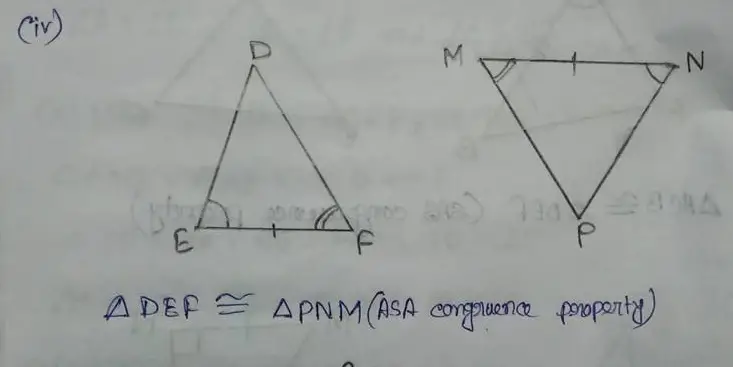 (iv)
D
M N
E F
P
△ DEF ≅ △PNM (ASA congruence property)